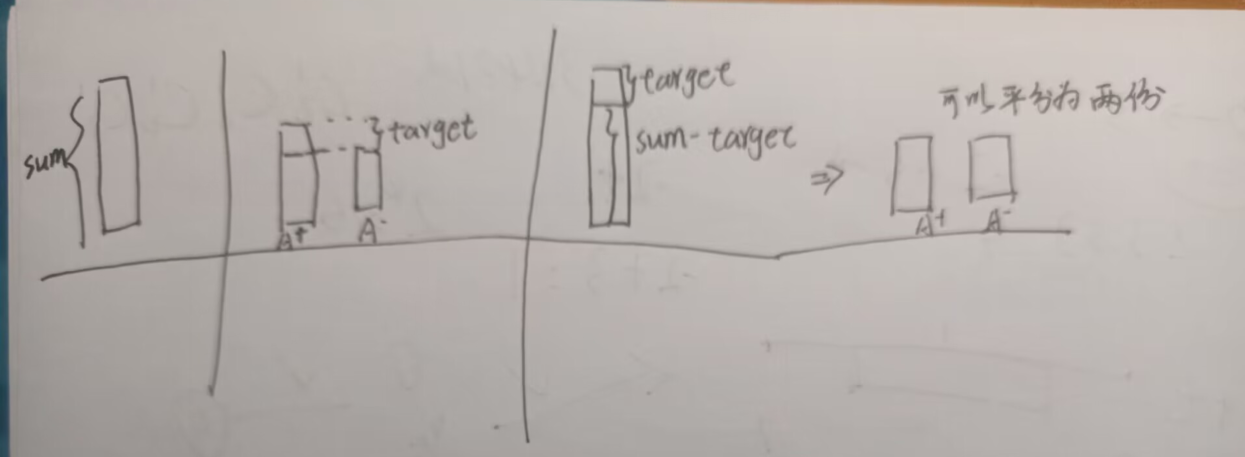 sum
target
A⁺ A⁻
target
sum-target
⇒
可以平分为两份
A⁺ A⁻